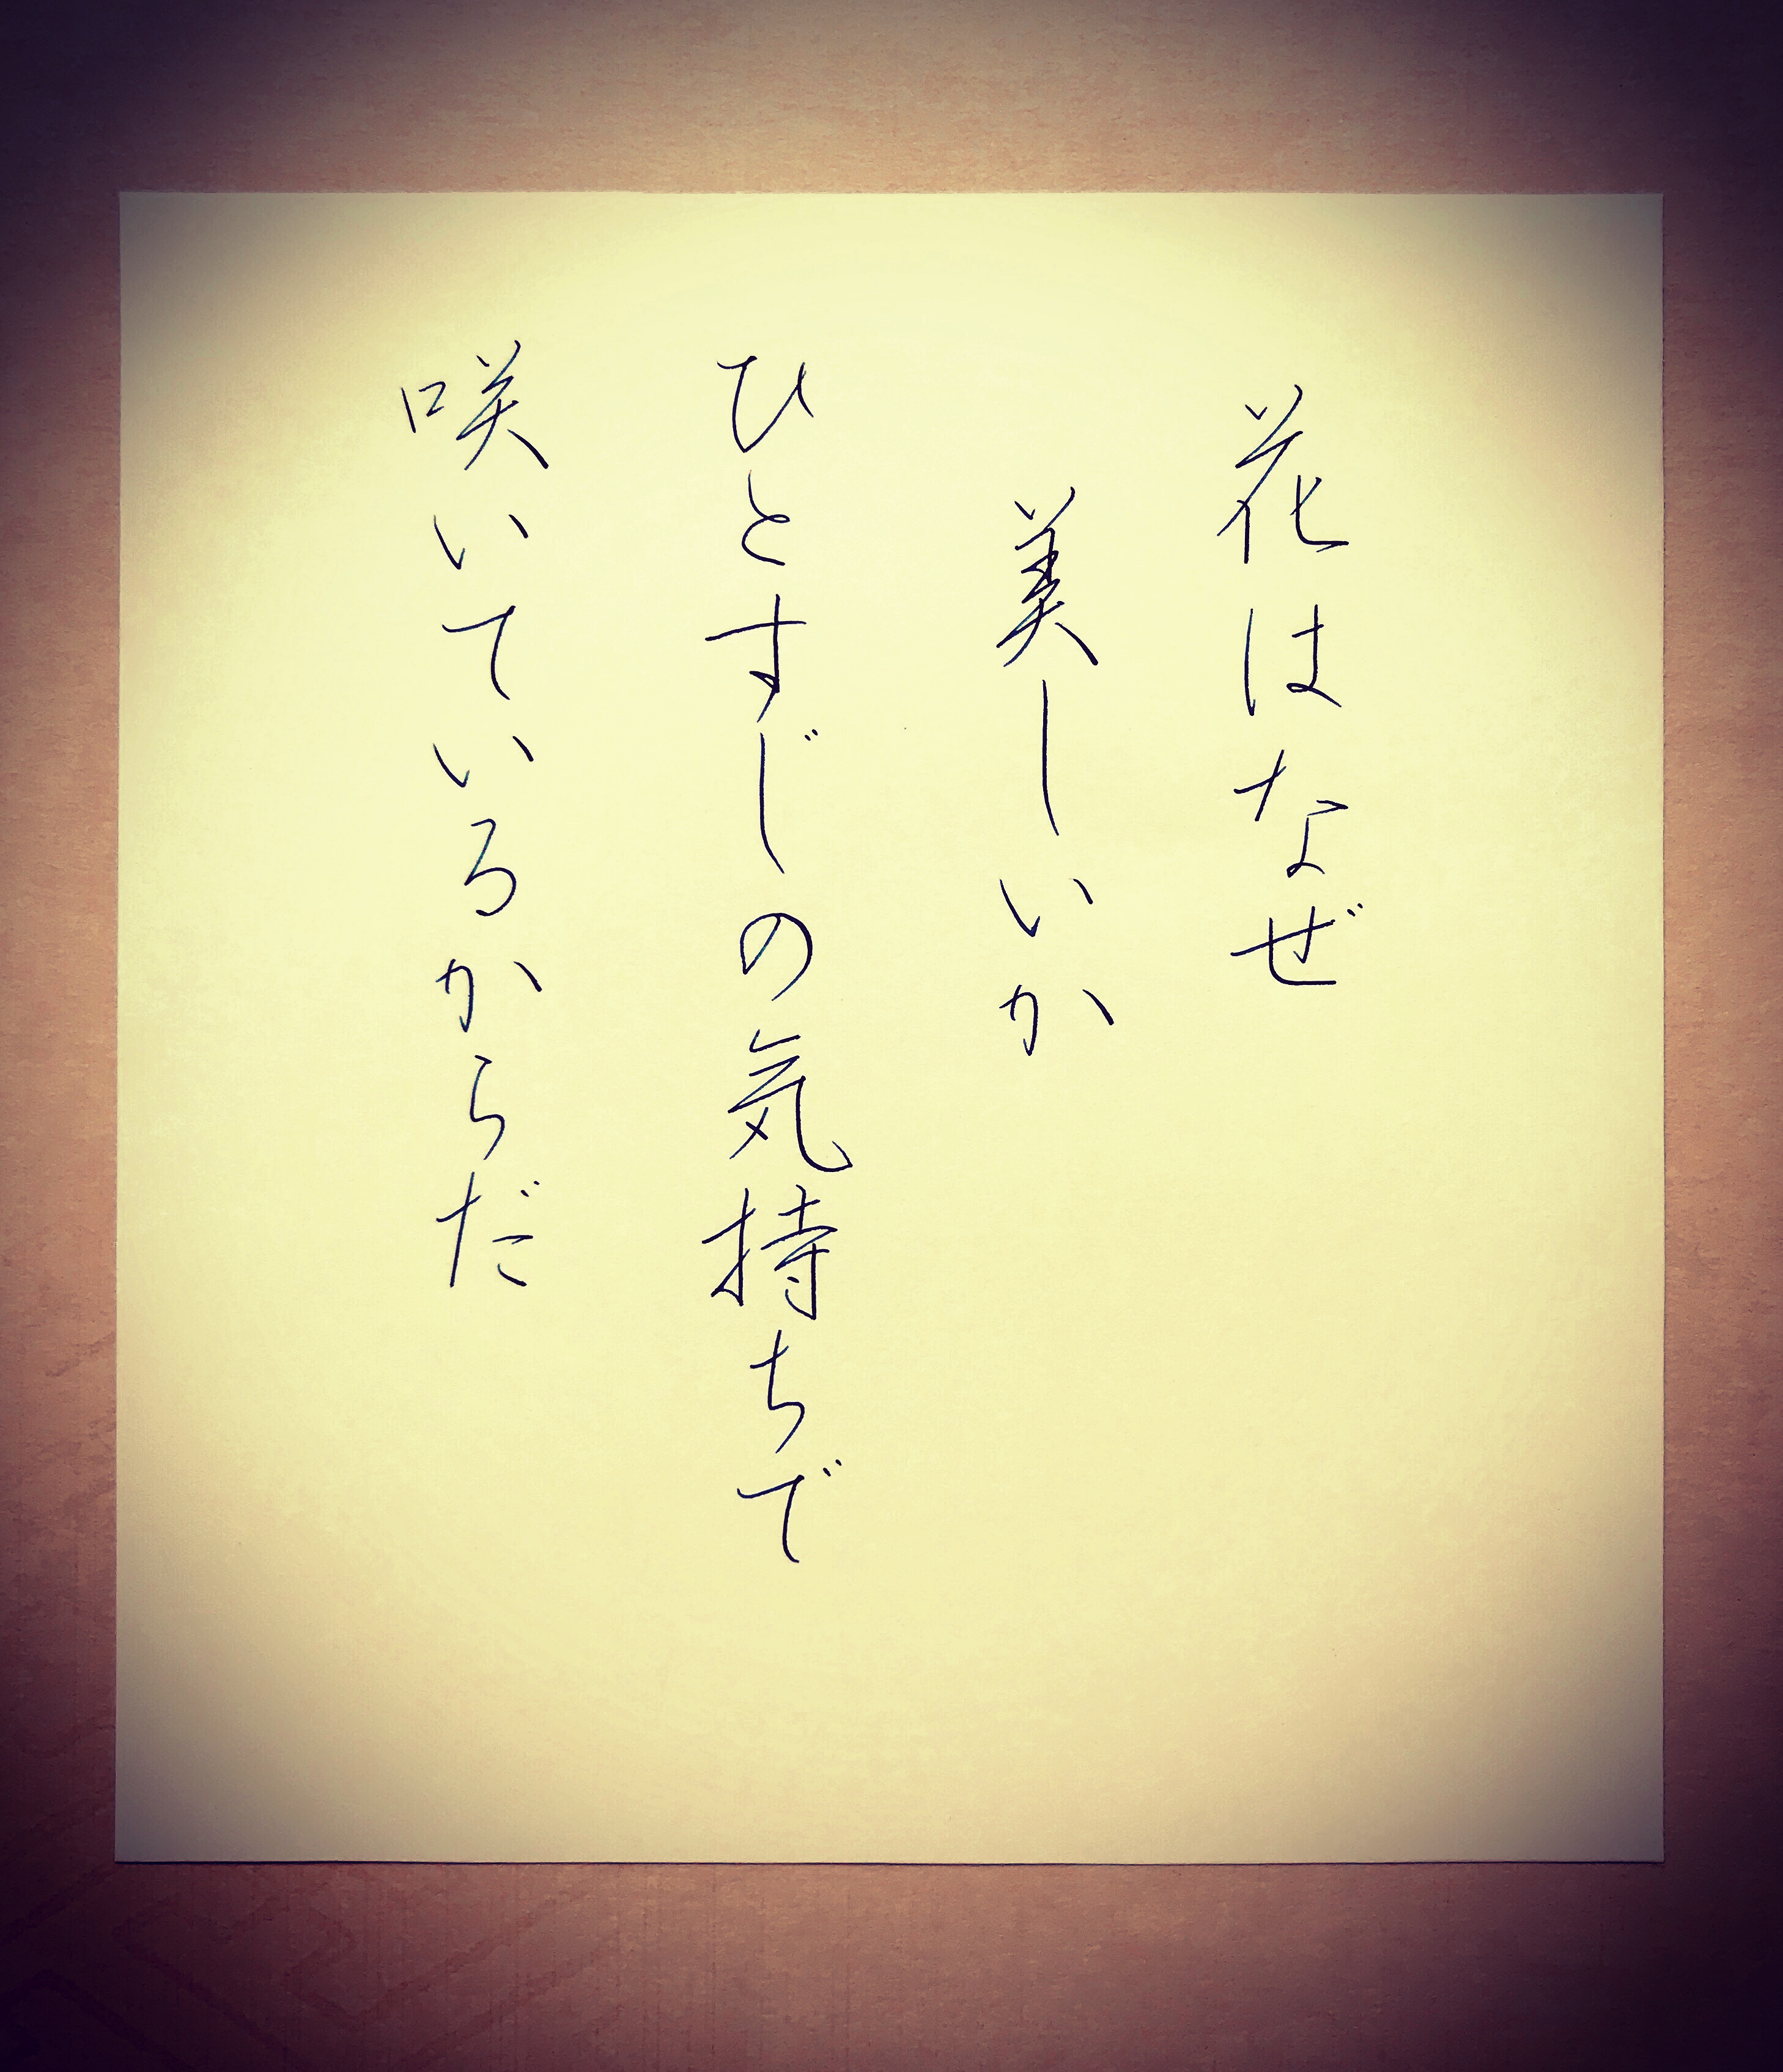 花はなぜ
美しいか
ひとすじの気持ちで
咲いているからだ